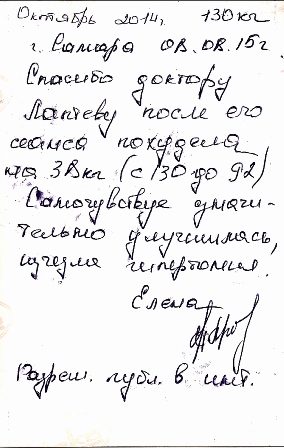 Октябрь 2014г. 130кг
г. Самара 08.08.15г
Спасибо доктору
Лаптеву после его
сеанса похудела
на 38кг (с 130 до 92)
Самочувствие значи-
тельно улучшилось,
исчезла гипертония.
Елена
Разреш. публ. в инт.